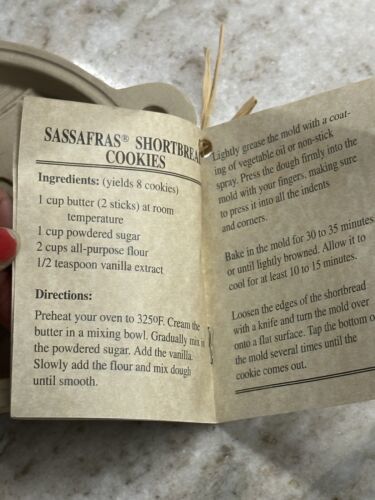 SASSAFRAS® SHORTBREA
COOKIES
Ingredients: (yields 8 cookies)
1 cup butter (2 sticks) at room
temperature
1 cup powdered sugar
2 cups all-purpose flour
1/2 teaspoon vanilla extract
Directions:
Preheat your oven to 325ºF. Cream the
butter in a mixing bowl. Gradually mix in
the powdered sugar. Add the vanilla.
Slowly add the flour and mix dough
until smooth.
Lightly grease the mold with a coat-
ing of vegetable oil or non-stick
spray. Press the dough firmly into the
mold with your fingers, making sure
to press it into all the indents
and corners.
Bake in the mold for 30 to 35 minutes
or until lightly browned. Allow it to
cool for at least 10 to 15 minutes.
Loosen the edges of the shortbread
with a knife and turn the mold over
onto a flat surface. Tap the bottom o
the mold several times until the
cookie comes out.